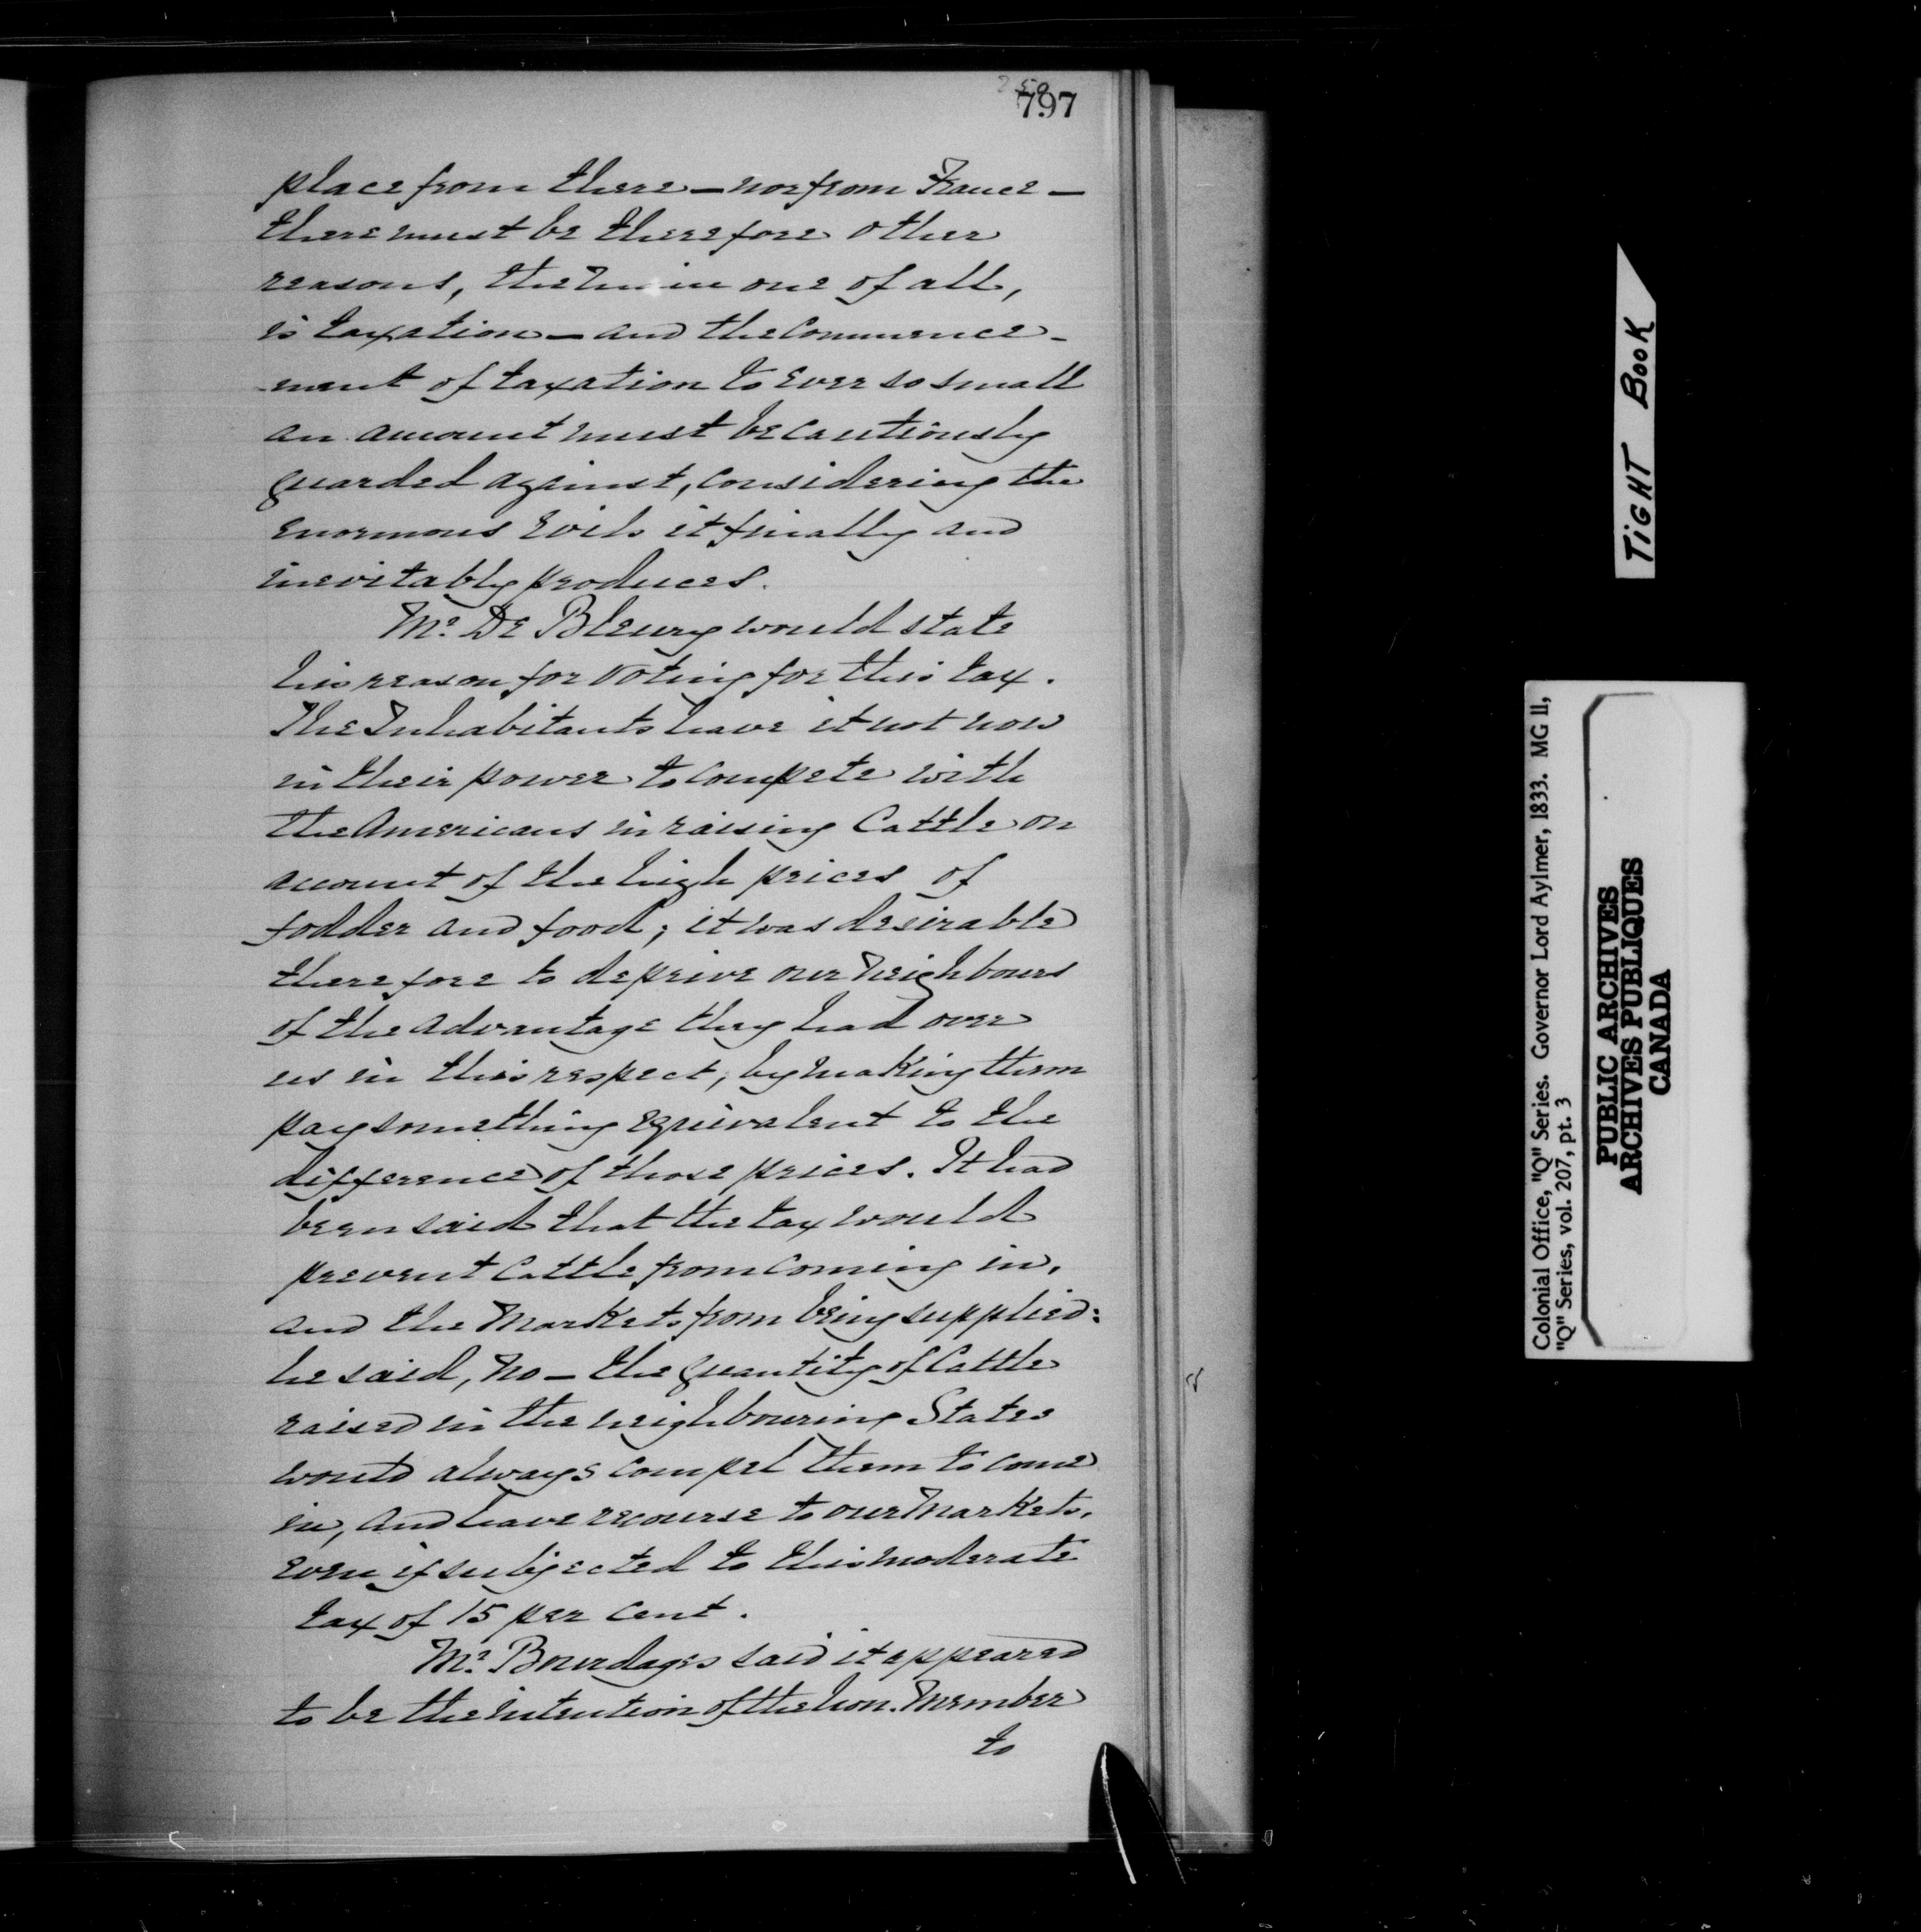 797
place from there — nor from France —
there must be therefore other
reasons, the main one of all,
is taxation — and the Commence-
-ment of taxation to ever so small
an amount must be cautiously
guarded against, considering the
enormous evils it finally and
inevitably produces.
Mr. De Bleury would state
his reason for voting for this tax.
The Inhabitants have it not now
in their power to compete with
the Americans in raising Cattle on
account of the high prices of
fodder and food; it was desirable
therefore to deprive our Neighbours
of the advantage they had over
us in this respect, by making them
pay something equivalent to the
difference of those prices. It had
been said that the tax would
prevent Cattle from coming in,
and the Markets from being supplied:
he said, No — the quantity of Cattle
raised in the neighbouring States
would always compel them to come
in, and have recourse to our Markets,
even if subjected to this moderate
tax of 15 per cent.
Mr. Bourdages said it appeared
to be the intention of the hon. Member
to
TIGHT BOOK
Colonial Office, "Q" Series. Governor Lord Aylmer, 1833. MG 11,
"Q" Series, vol. 207, pt. 3
PUBLIC ARCHIVES
ARCHIVES PUBLIQUES
CANADA